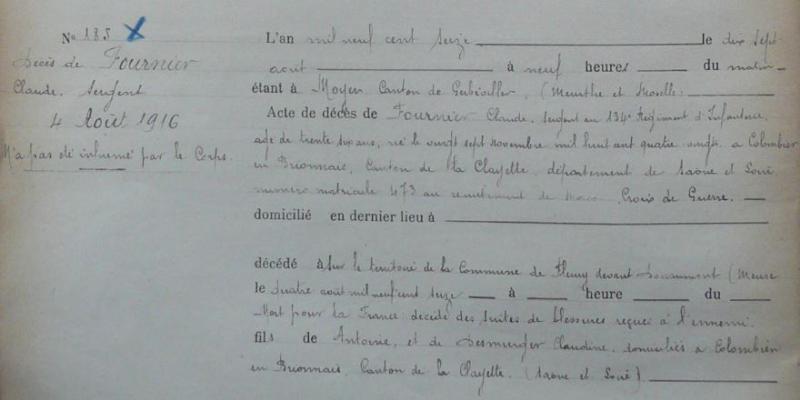 No 185
Décès de Fournier
Claude, Sergent
4 Août 1916
N'a pas été inhumé par le Corps.
L'an mil neuf cent seize le dix sept
août à neuf heures du matin
étant à Moyen Canton de Gerbéviller, (Meurthe et Moselle)
Acte de décès de Fournier Claude, sergent au 134e Régiment d'Infanterie,
age de trente six ans, né le vingt sept Novembre mil huit cent quatre vingt, a Colombier
en Brionnais, Canton de la Clayette, département de Saône et Loire
numéro matricule 473 au recrutement de Macon. Croix de Guerre.
domicilié en dernier lieu à
décédé à sur le territoire de la Commune de Fleury devant Douaumont (Meuse
le quatre août mil neuf cent seize à heure du
Mort pour la France décédé des suites de blessures reçues à l'ennemi.
fils de Antoine, et de Desmurger Claudine, domiciliés a Colombier
en Brionnais, Canton de la Clayette. (Saone et Loire)